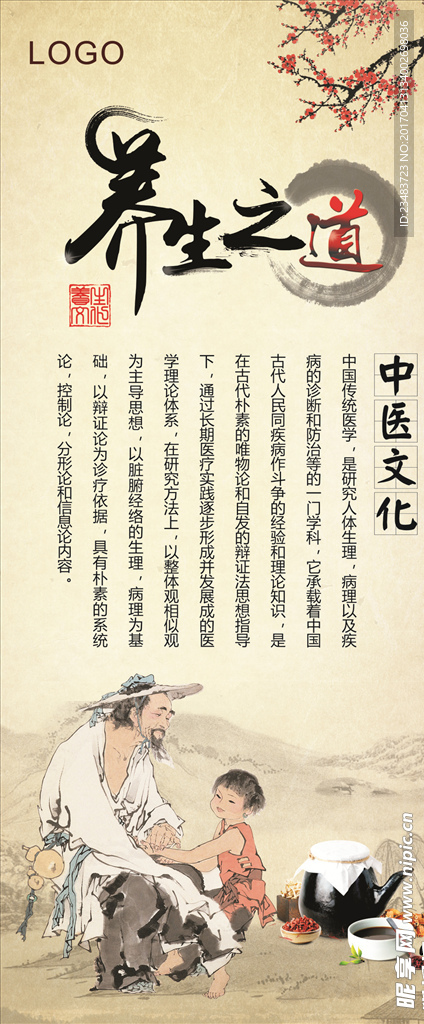 LOGO
养生之道
养生文化
中医文化
中国传统医学，是研究人体生理，病理以及疾
病的诊断和防治等的一门学科，它承载着中国
古代人民同疾病作斗争的经验和理论知识，是
在古代朴素的唯物论和自发的辩证法思想指导
下，通过长期医疗实践逐步形成并发展成的医
学理论体系，在研究方法上，以整体观相似观
为主导思想，以脏腑经络的生理，病理为基
础，以辩证论为诊疗依据，具有朴素的系统
论，控制论，分形论和信息论内容。
昵享网 www.nipic.cn